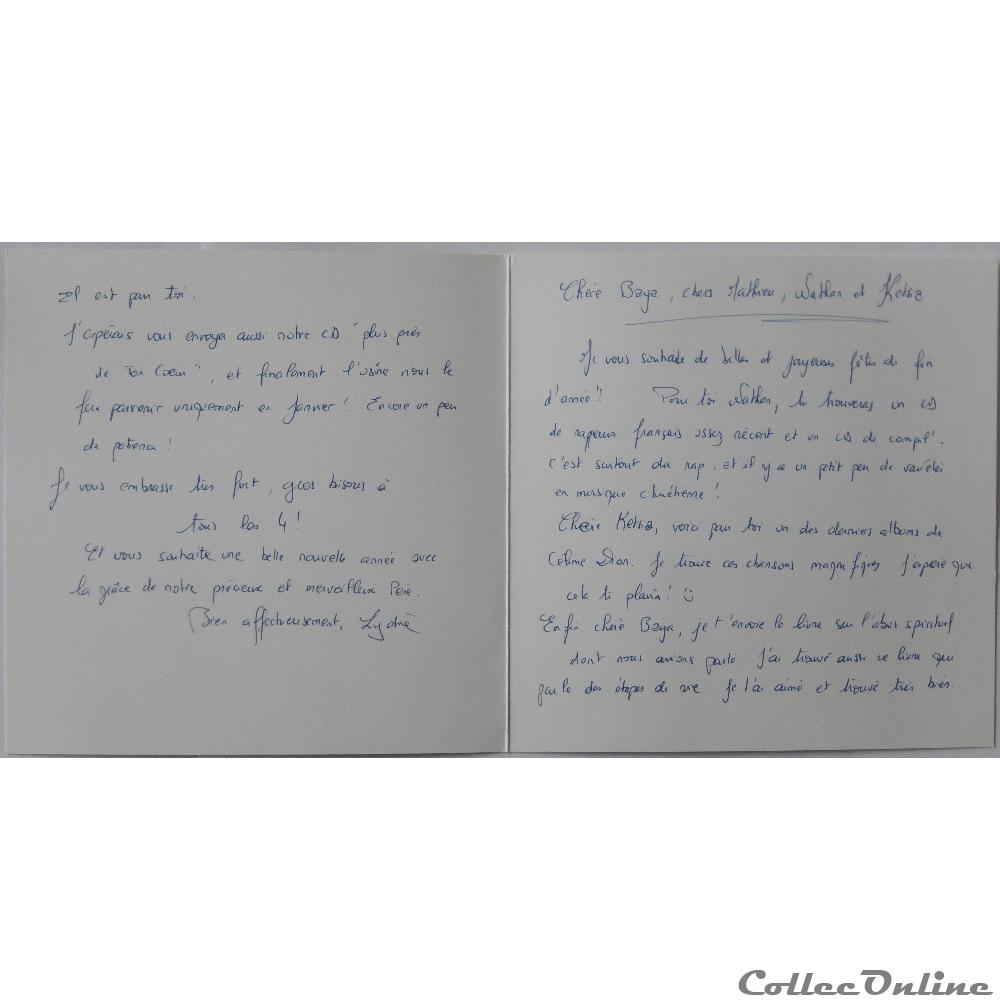 Chère Baya, chers Mathieu, Nathan et Ketsia
Je vous souhaite de belles et joyeuses fêtes de fin
d'année !! Pour toi Nathan, tu trouveras un CD
de rappeurs français assez récent et un CD de compil'.
C'est surtout du rap, et il y a un petit peu de variétés
en musique chrétienne !
Chère Ketsia, voici pour toi un des derniers albums de
Céline Dion. Je trouve ces chansons magnifiques. J'espère que
cela te plaira ! ☺
Enfin chère Baya, je t'envoie le livre sur l'abus spirituel
dont nous avions parlé. J'ai trouvé aussi ce livre qui
parle des étapes de vie. Je l'ai aimé et trouvé très bien.
Il est pour toi.
J'espérais vous envoyer aussi notre CD "plus près
de Ton Coeur", et finalement l'usine nous le
fera parvenir uniquement en Janvier ! Encore un peu
de patience !
Je vous embrasse très fort, gros bisous à
tous les 4 !
Et vous souhaite une belle nouvelle année avec
la grâce de notre précieux et merveilleux Père.
Bien affectueusement, Lydie
CollecOnline